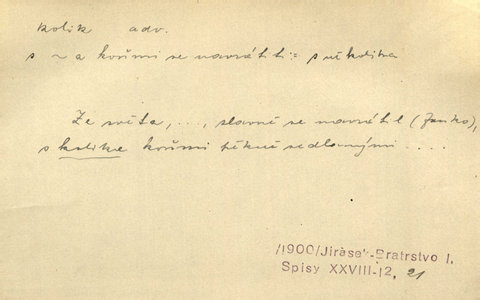 kolik adv.
s ~ a koňmi se navrátiti = s několika
Ze světa, ..., slavně se navrátil (Janko),
s kolika koňmi pěkně sedlanými ....
/1900/Jirásek-Bratrstvo I.
Spisy XXVIII-12, 21